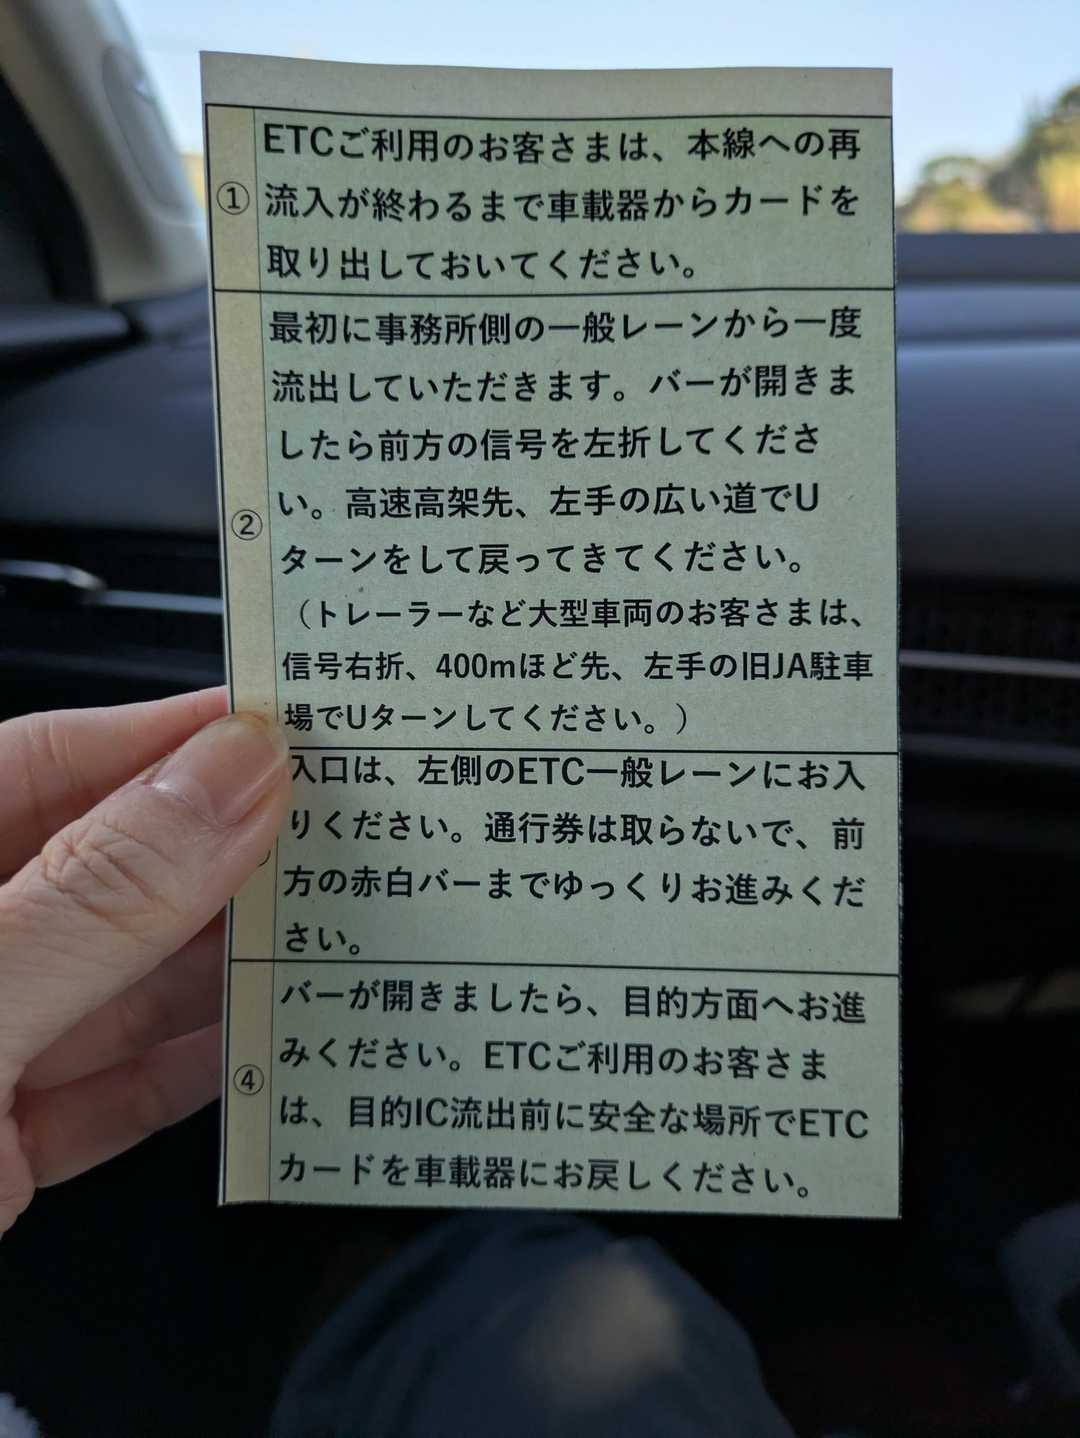 ①
ETCご利用のお客さまは、本線への再
流入が終わるまで車載器からカードを
取り出しておいてください。
②
最初に事務所側の一般レーンから一度
流出していただきます。バーが開きま
したら前方の信号を左折してくださ
い。高速高架先、左手の広い道でU
ターンをして戻ってきてください。
（トレーラーなど大型車両のお客さまは、
信号右折、400mほど先、左手の旧JA駐車
場でUターンしてください。）
入口は、左側のETC一般レーンにお入
りください。通行券は取らないで、前
方の赤白バーまでゆっくりお進みくだ
さい。
④
バーが開きましたら、目的方面へお進
みください。ETCご利用のお客さま
は、目的IC流出前に安全な場所でETC
カードを車載器にお戻しください。